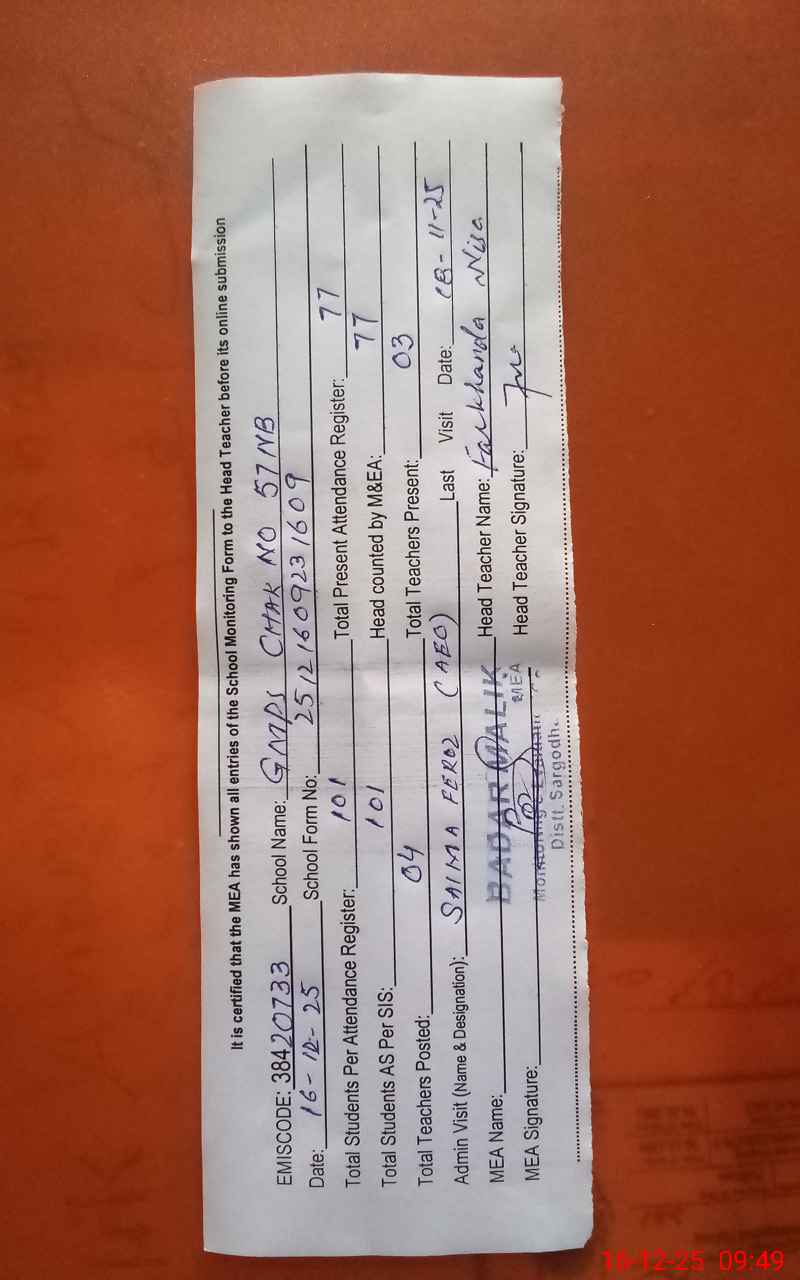 It is certified that the MEA has shown all entries of the School Monitoring Form to the Head Teacher before its online submission
EMISCODE: 38420733 School Name: GMPS CHAK NO 57NB
Date: 16-12-25 School Form No: 2512160923 1609
Total Students Per Attendance Register: 101 Total Present Attendance Register: 77
Total Students AS Per SIS: 101 Head counted by M&EA: 77
Total Teachers Posted: 04 Total Teachers Present: 03
Admin Visit (Name & Designation): SAIMA FEROZ (AEO) Last Visit Date: 18-11-25
MEA Name: BADAR MALIK Head Teacher Name: Farkhanda Nisa
MEA
MEA Signature: Head Teacher Signature:
Distt. Sargodh
16-12-25 09:49